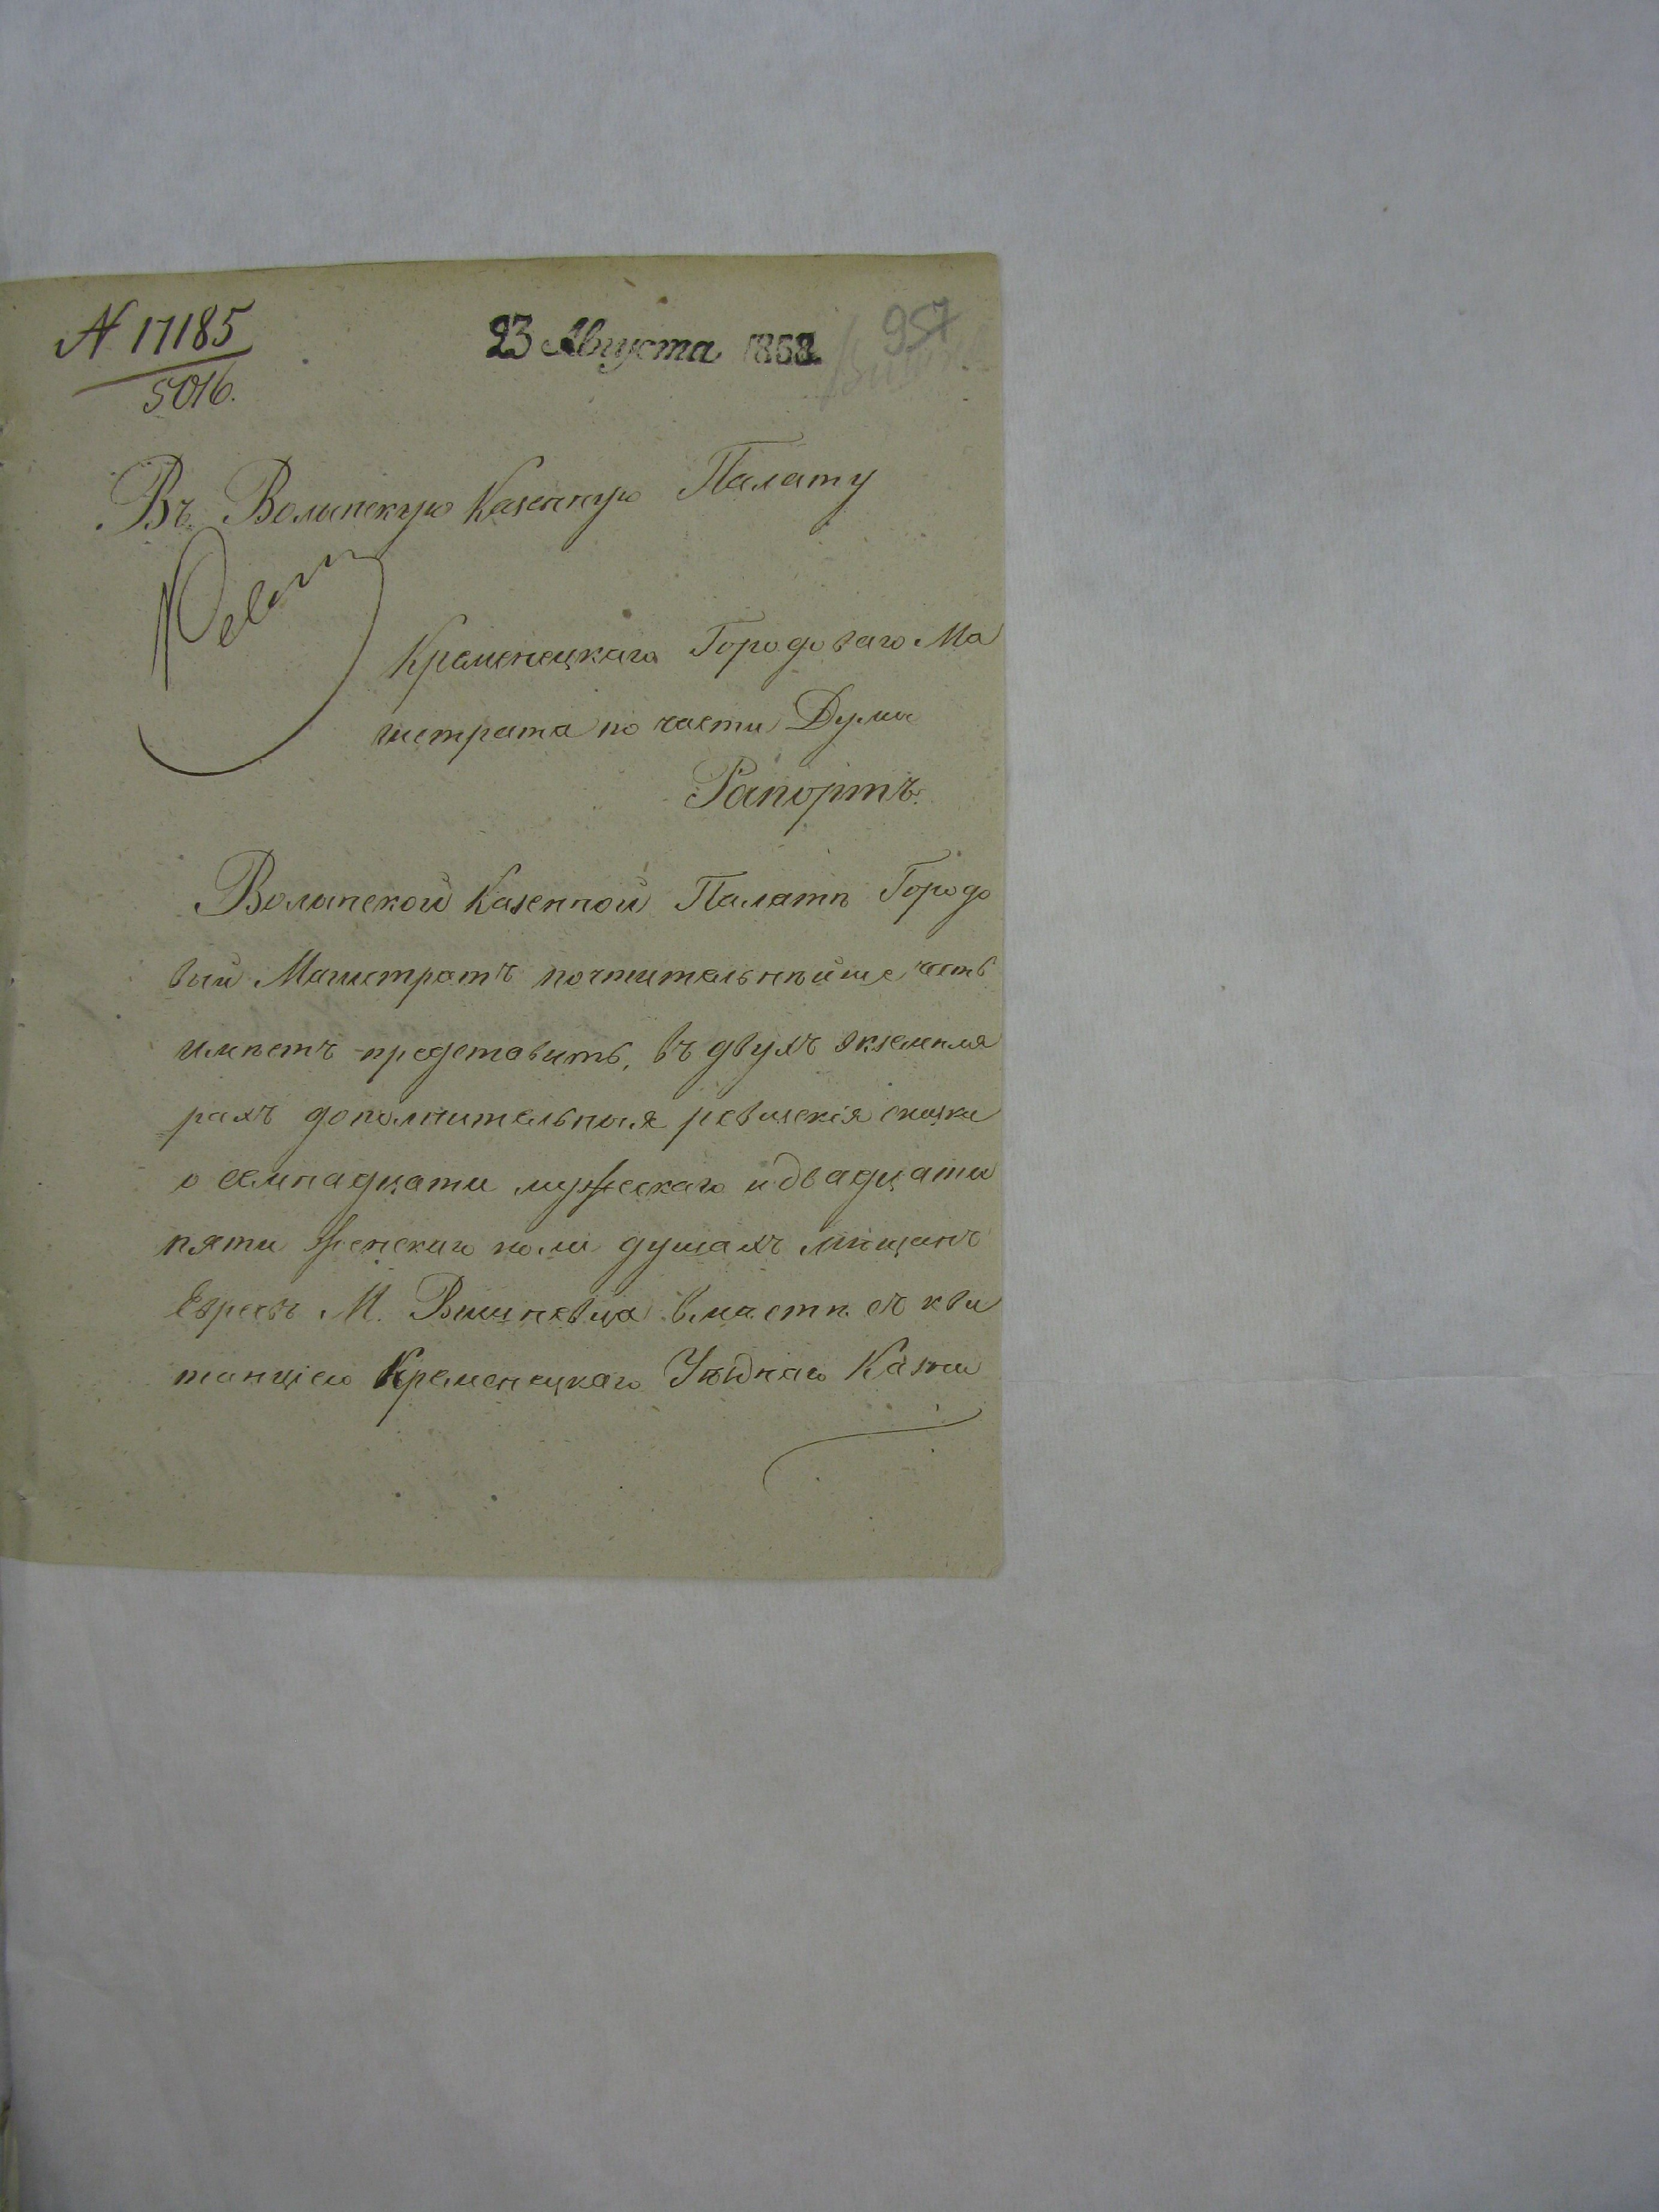 N 17185
5016.
23 Августа 1868
957
Въ Волынскую Казенную Палату
Ревиз
Кременецкаго Городоваго Ма
гистрата по части Думы
Рапортъ.
Волынской Казенной Палатѣ Городо
вый Магистратъ почтительнѣйше честь
имѣетъ представить, въ двухъ экземпля
рахъ дополнительныя ревизскія сказки
о семнадцати мужескаго и двадцати
пяти женскаго пола душахъ мѣщанъ
Евреевъ М. Вишневца вмѣстѣ съ кви
танціею Кременецкаго Уѣзднаго Казна